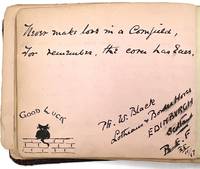 Never make love in a Cornfield,
For remember, the corn has Ears.
GOOD LUCK
W. Black
Lothians & Border Horse
EDINBURGH
Scotland
B.E.F.